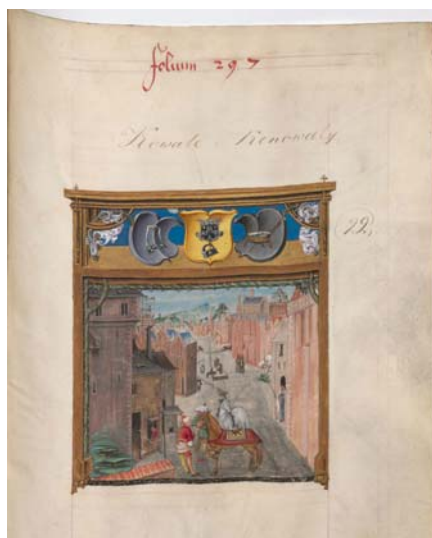 folium 297
Kowale Konowały
(22)